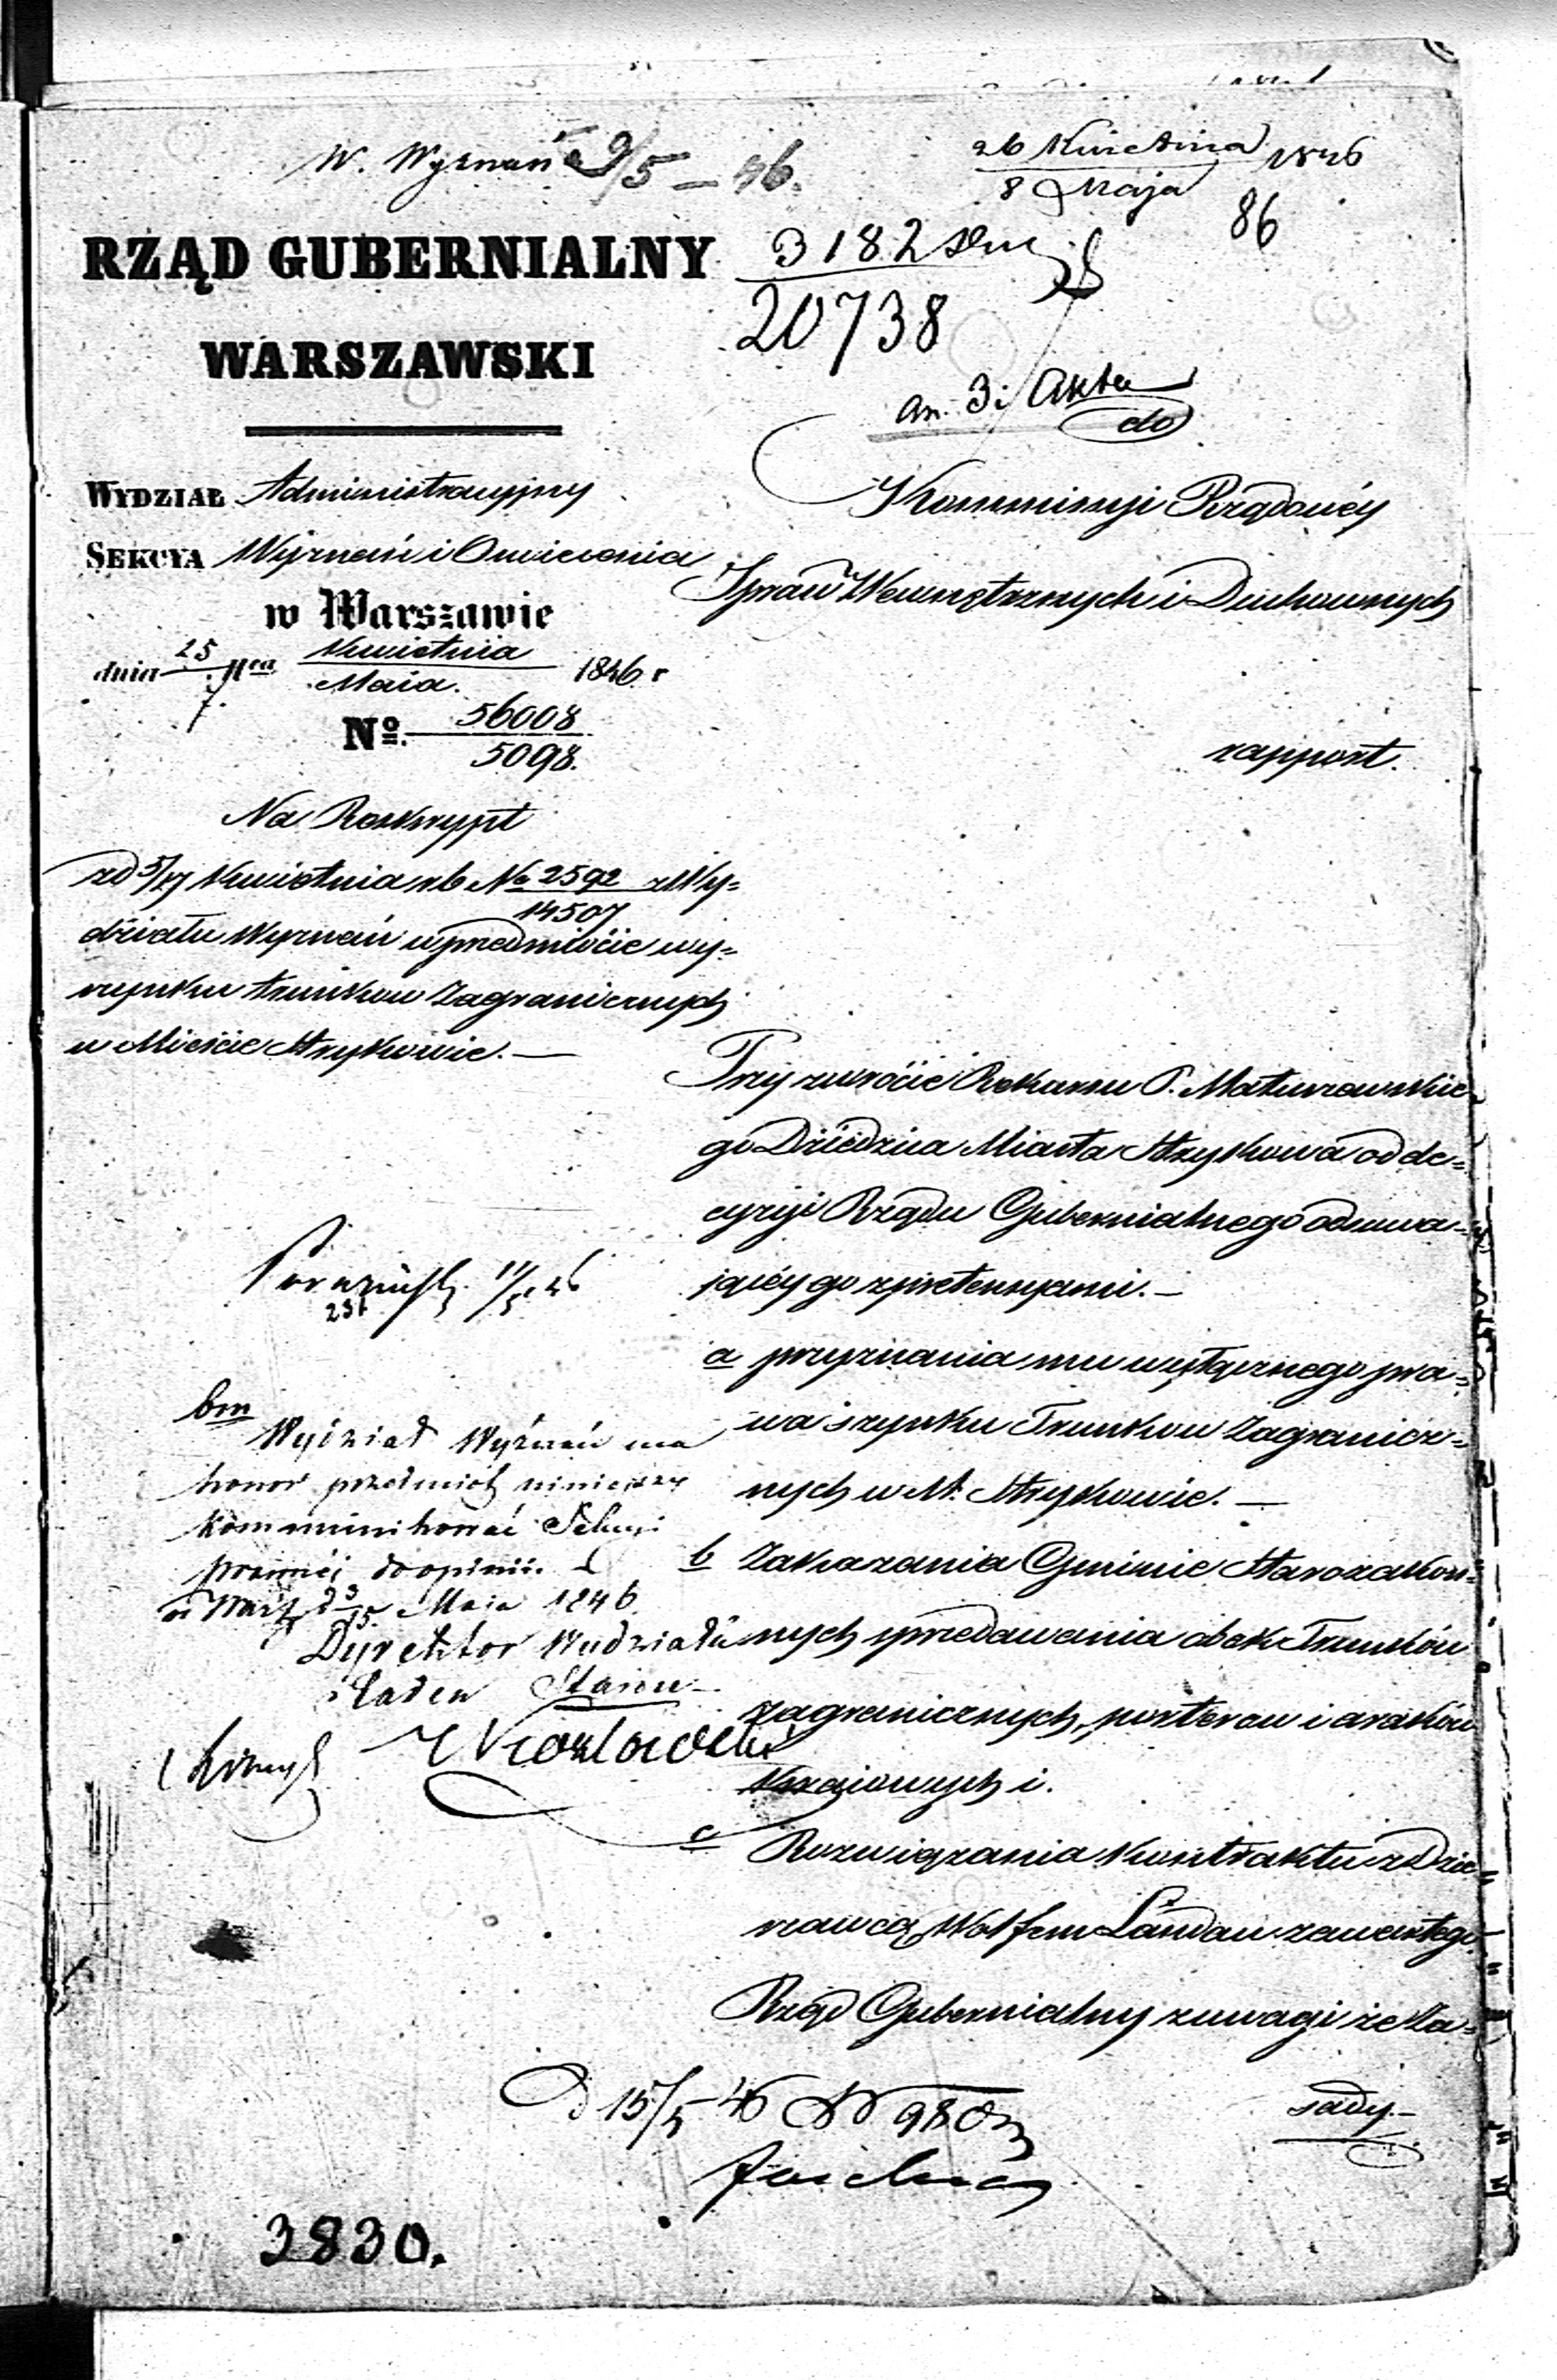 W. Wyznań 9/5 – 46.
26 Kwietnia 1846
8 Maja
86
RZĄD GUBERNIALNY
WARSZAWSKI
3182
20738
an. 3 i Akta
do
WYDZIAŁ Administracyjny
SEKCYA Wyznań i Oświecenia
w Warszawie
dnia 25/7 Mca Kwietnia/Maia. 1846 r
No. 56008
5098.
Kommissyi Rządowéy
Spraw Wewnętrznych i Duchownych
rapport.
Na Reskrypt
zd 5/17 Kwietnia rb No 2592 z Wy=
14507
działu Wyznań w przedmiocie wy=
szynku trunkow Zagranicznych
w Mieście Strykowie. —
Przy zwrócie Rekursu P. Matuszewskie
go Dziedzica Miasta Strykowa od de=
cyzyi Rządu Gubernialnego odsuwa=
jącéy go z pretensyami. —
a przyznania mu wyłącznego pra=
wa szynku Trunkow Zagranicz=
nych w M. Strykowie. —
b Zakazania Gminie Starozakon=
nych sprzedawania obok Trunków
zagranicznych, porterow i araków
Krajowych i.
c Rozwiązania Kontraktu z Dzier
zawcą Wolfem Landau zawartego
Rząd Gubernialny z uwagi że Za=
sady. —
11/5 46
231
bm
Wydział Wyznań ma
honor przedmiot niniejszy
kommunikować Sekcyi
prawnéj do opinii.
w Warsz d 3/15 Maia 1846
Dyrektor Wydziału
Radca Stanu
15/5 46 N 980
3830.